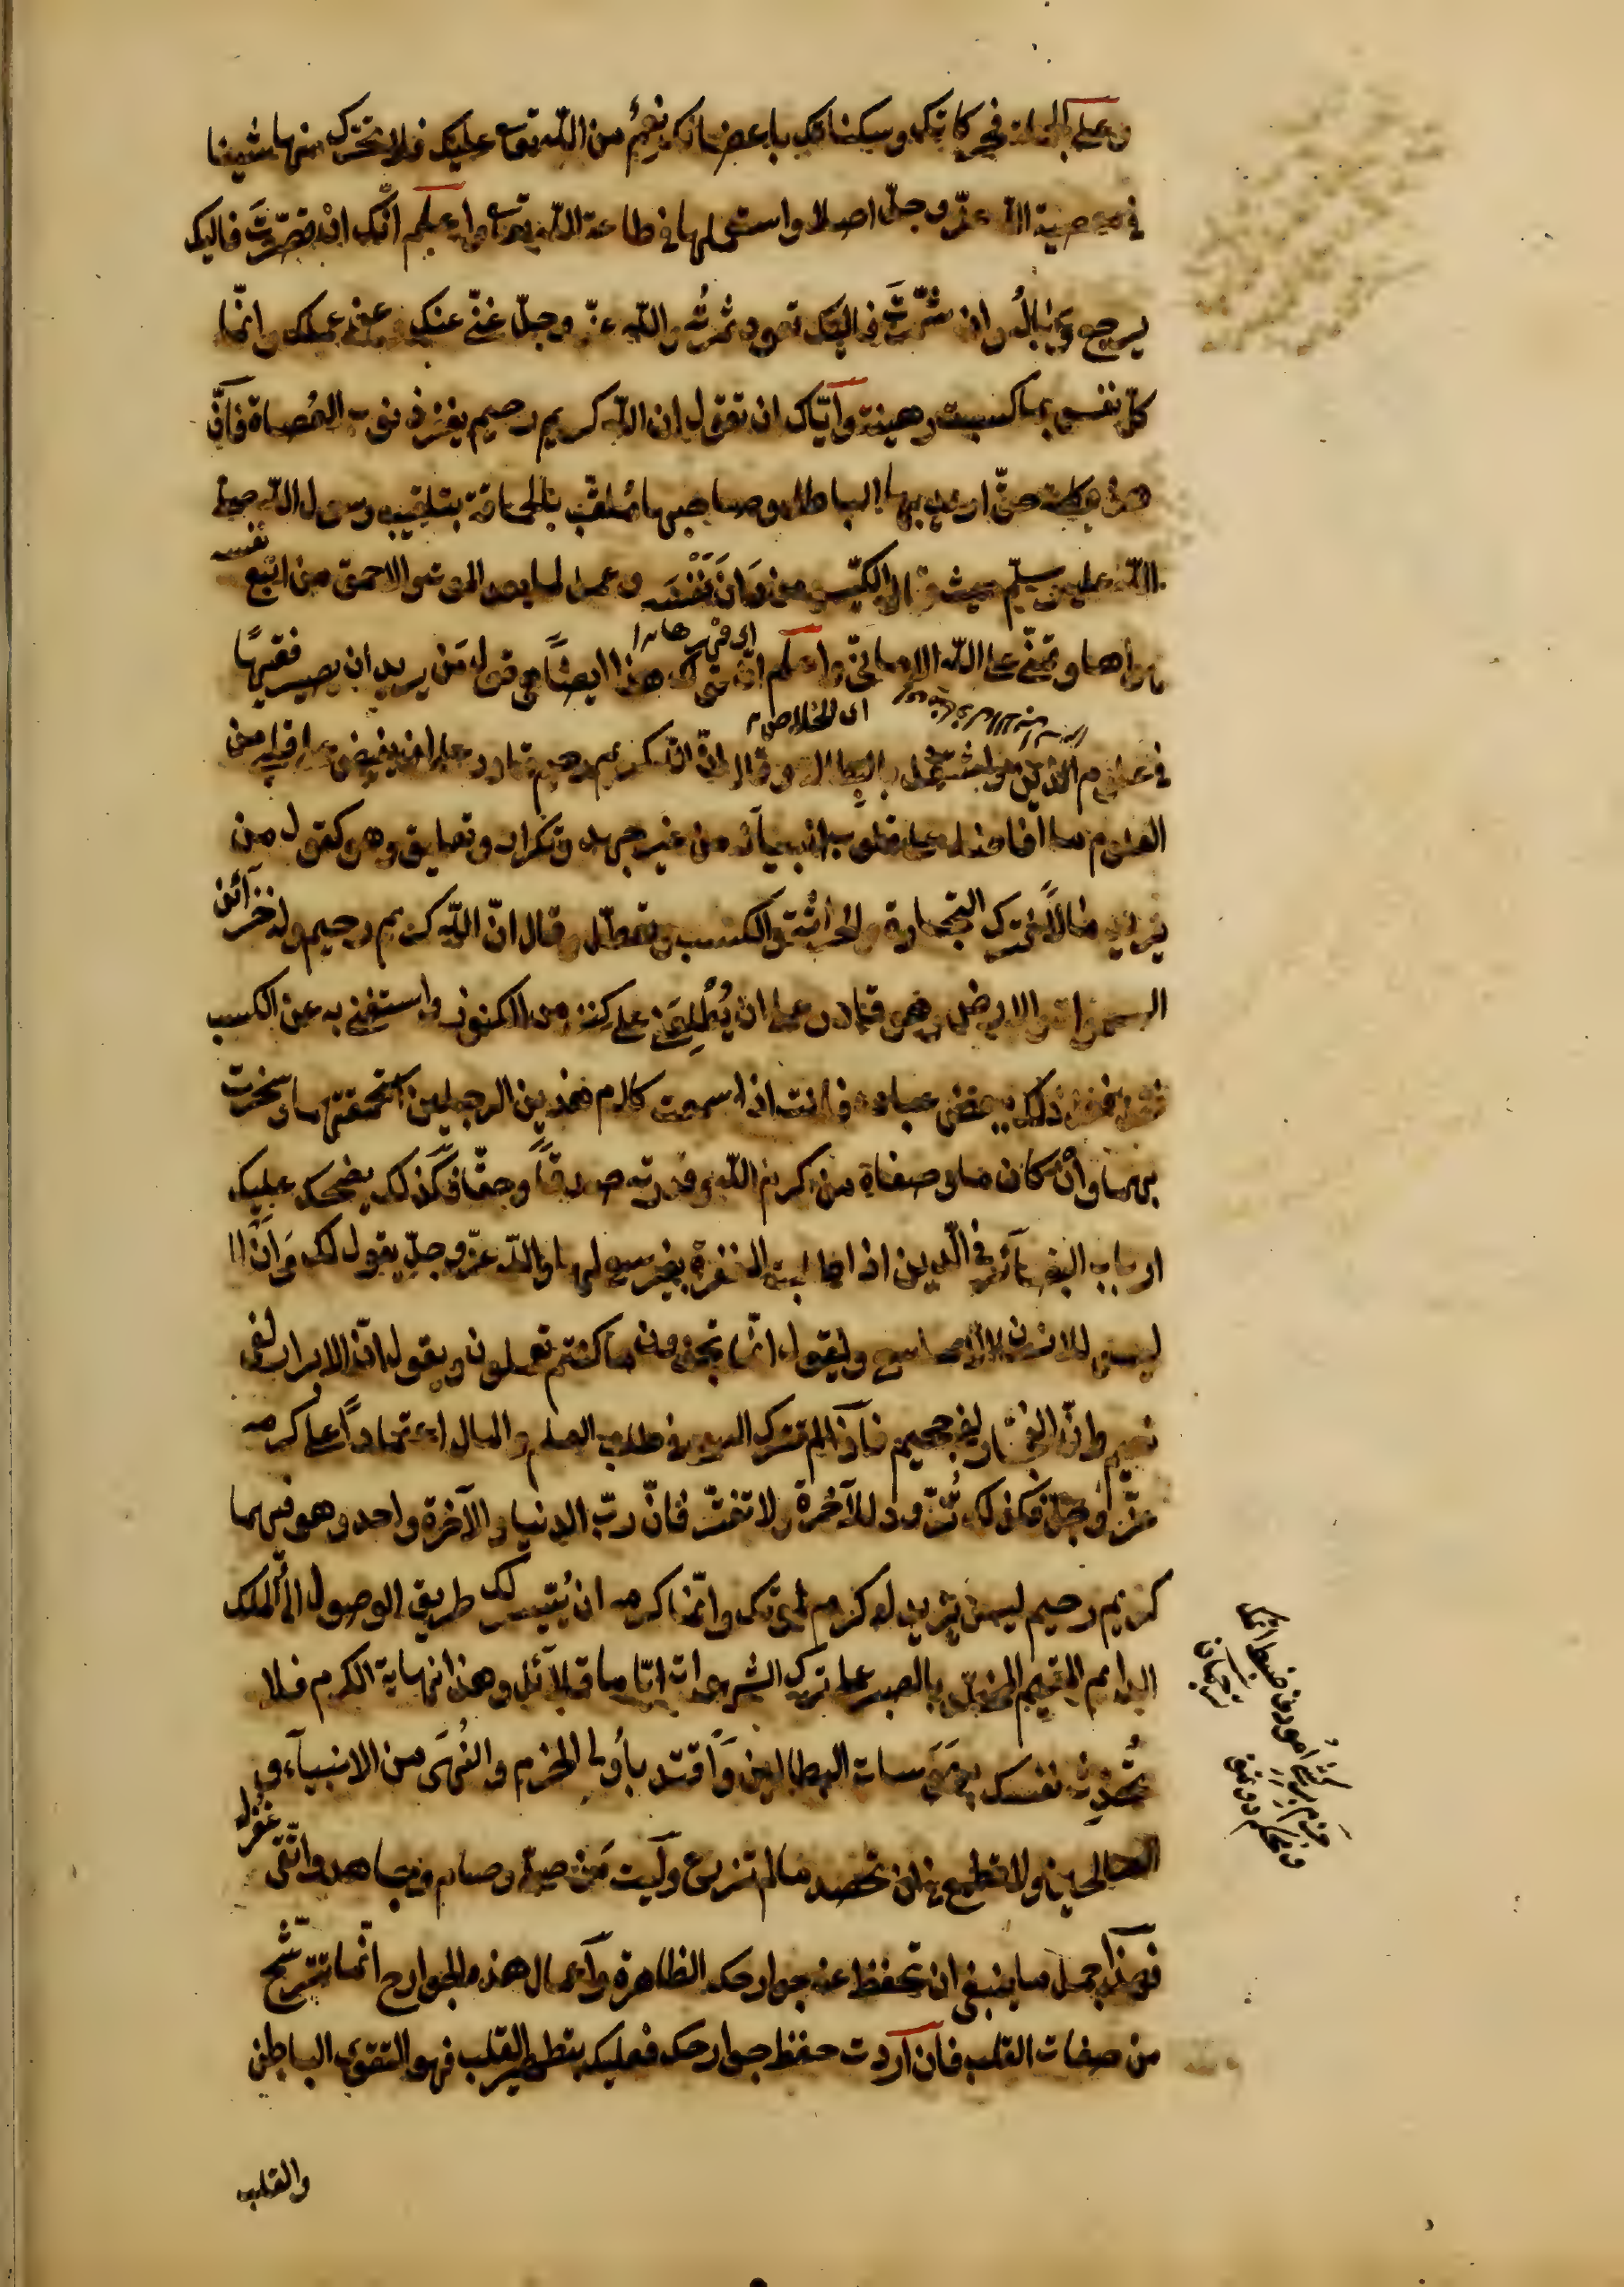 وعلى الجملة فحركاتك وسكناتك باعضائك نعم من الله تع عليك فلا تحرك منها شيئا
في معصية الله عزّ وجلّ اصلا واستعملها في طاعة الله تع واعلم انّك ان قصّرت فاليك
يرجع وباله وان شمّرت فاليك تعود ثمرته والله عزّ وجلّ غنيّ عنك وعن عملك وانّما
كلّ نفس بما كسبت رهينة وايّاك ان تقول ان الله كريم رحيم يغفر ذنوب العصاة فانّ
هذه كلمة حقّ اريد بها الباطل وصاحبها ملقّب بالحماقة بتلقيب رسول الله صلى
الله عليه وسلّم حيث قال الكيّس من دان نفسه وعمل لما بعد الموت والاحمق من اتبع نفسه
هواها وتمنّى على الله الامانيّ واعلم انّ قولك هذا ايضاهي قول من يريد ان يصير فقيهًا
اى قهرها
في علوم الدّين واشتغل بالبطالة وقال انّ الله كريم رحيم قادر على ان يفيض على قلبي من
العلوم ما افاضه على قلوب انبيآئه من غير جهد وتكرار وتعليق وهو كقول من
يريد مالًا فترك التجارة والحراثة والكسب وتعطّل وقال انّ الله كريم رحيم وله خزآئن
السموات والارض وهو قادر على ان يُطْلِعَني على كنز من الكنوز واستغني به عن الكسب
فقد فعل ذلك ببعض عباده فانت اذا سمعت كلام هذين الرجلين استحمقتهما وسخرت
بهما وان كان ما وصفاه من كرم الله وقدرته صدقًا وحقّا فكذلك يضحك عليك
ارباب البصآئر في الدّين اذا طلبت المغفرة بغير سعي لها والله عزّ وجلّ يقول لك وَاَنْ
ليس للانسان الا ما سعى ويقول انّما تجزون ما كنتم تعملون ويقول انّ الابرار لفي
نعيم وانّ الفجّار لفي جحيم فاذا لم تترك السعي في طلب العلم والمال اعتمادًا على كرمه
عزّ وجلّ فكذلك تزّود للآخرة ولا تفتر فانّ ربّ الدنيا والآخرة واحد وهو فيهما
كريم رحيم ليس يزيد له كرم بطاعتك وانّما كرمه ان يُيَسِّر لك طريق الوصول الى الملك
الدايم المقيم المخلّد بالصبر على ترك الشهوات ايّاما قلائل وهذا نهاية الكرم فلا
تُحَدِّث نفسك بهوسات البطالين واقتد بأولي الحزم والنُهى من الانبيآء و
الصالحين ولا تطمع في ان تحصد ما لم تزرع وليت من صلّى وصام وجاهد واتّقى غفر له
فهذا جمل ما ينبغي ان تحفظ عنه جوارحك الظاهرة واعمال هذه الجوارح انّما تترشّح
من صفات القلب فان اردت حفظ جوارحك فعليك بتطهير القلب فهو التقوى الباطن
والقلب